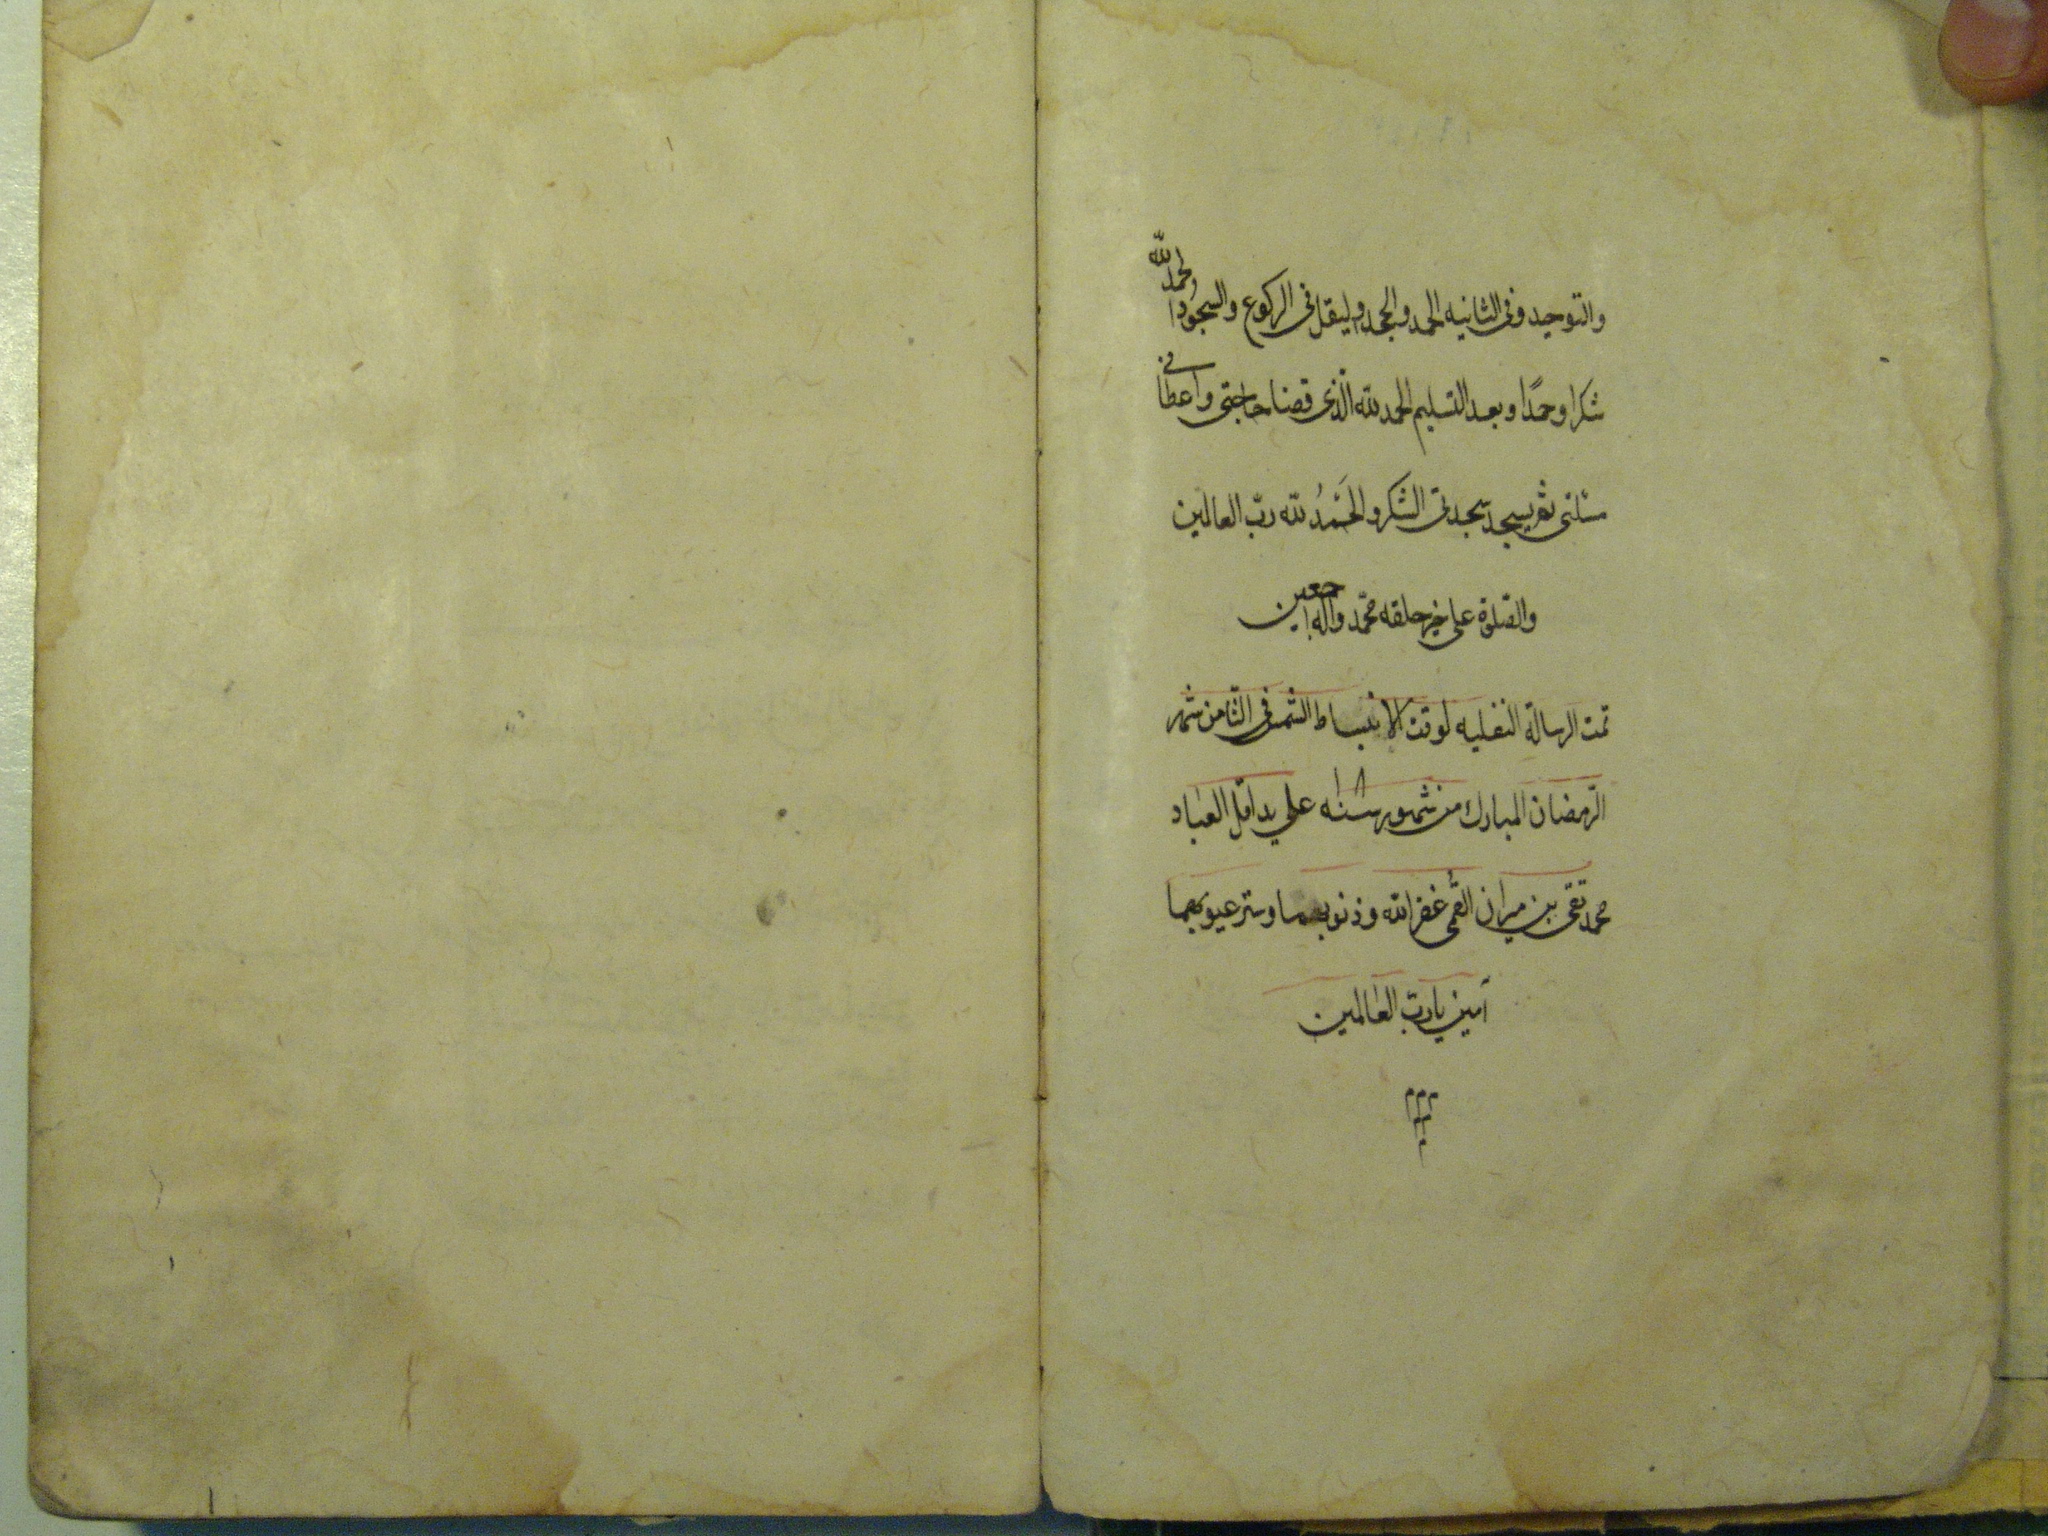 والتوحيد وفى الثانيه الحمد والجحد وليقل فى الركوع والسجود الحمد لله
شكرا وحمدا وبعد التسليم الحمد لله الذى قضا حاجتى واعطانى
مسئلتى ثم يسجد سجدتى الشكر والحمد لله رب العالمين
والصلوة على خير خلقه محمد وآله اجمعين
تمت الرسالة النفليه لوقت الانبساط الشمس فى الثامن شهر
الرمضان المبارك من شهور سنه على يد اقل العباد
محمد تقى بن ميران القمى غفر الله وذنوبهما وستر عيوبهما
آمين يا رب العالمين